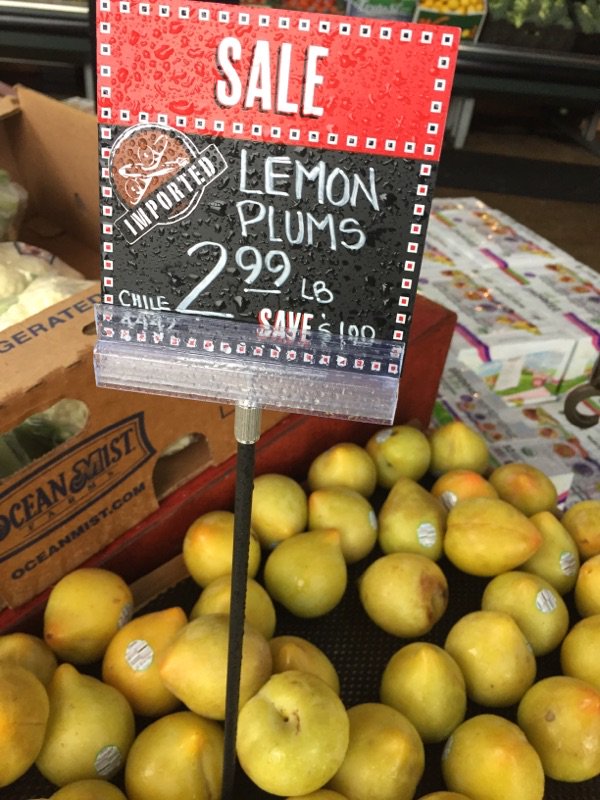 SALE
IMPORTED
LEMON
PLUMS
2.99 LB
CHILE
4442
SAVE $1.00
GERATED
OCEAN MIST
FARMS
OCEANMIST.COM